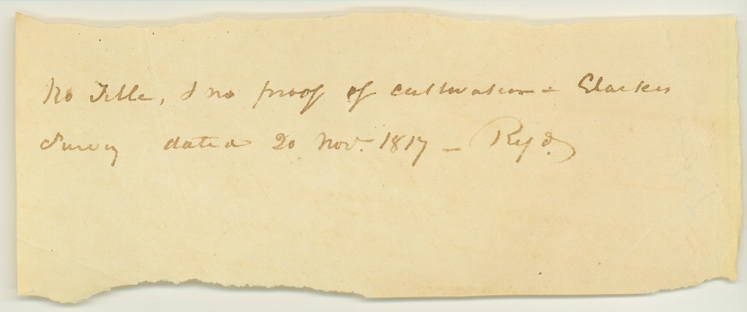 No Title, & no proof of cultivation - Clarkes
Survey dated 20 Nov. 1817 - Rejd.